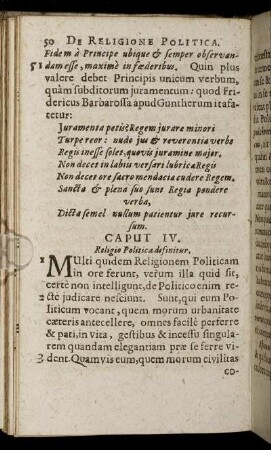 50 DE RELIGIONE POLITICA.
Fidem à Principe ubique & semper observan-
dam esse, maximè in fœderibus. Quin plus
51 valere debet Principis unicum verbum,
quàm subditorum juramentum: quod Fri-
dericus Barbarossa apud Guntherum ita fa-
tetur:
Juramenta petis? Regem jurare minori
Turpe reor: nudo jus & reverentia verbo
Regis inesse solet, quovis juramine major.
Non decet in labiis versari lubrica Regis
Non decet ore sacro mendacia cudere Regem.
Sancta & plena suo sunt Regia pondere
verba,
Dicta semel nullum patientur jure recur-
sum.
CAPUT IV.
Religio Politica definitur.
1 MUlti quidem Religionem Politicam
in ore ferunt, verùm illa quid sit,
certè non intelligunt, de Politico enim re-
2 ctè judicare nesciunt. Sunt, qui eum Po-
liticum vocant, quem morum urbanitate
cæteris antecellere, omnes facilè perferre
& pati, in vita, gestibus & incessu singula-
rem quandam elegantiam præ se ferre vi-
3 dent. Quamvis eum, quem morum civilitas
co-